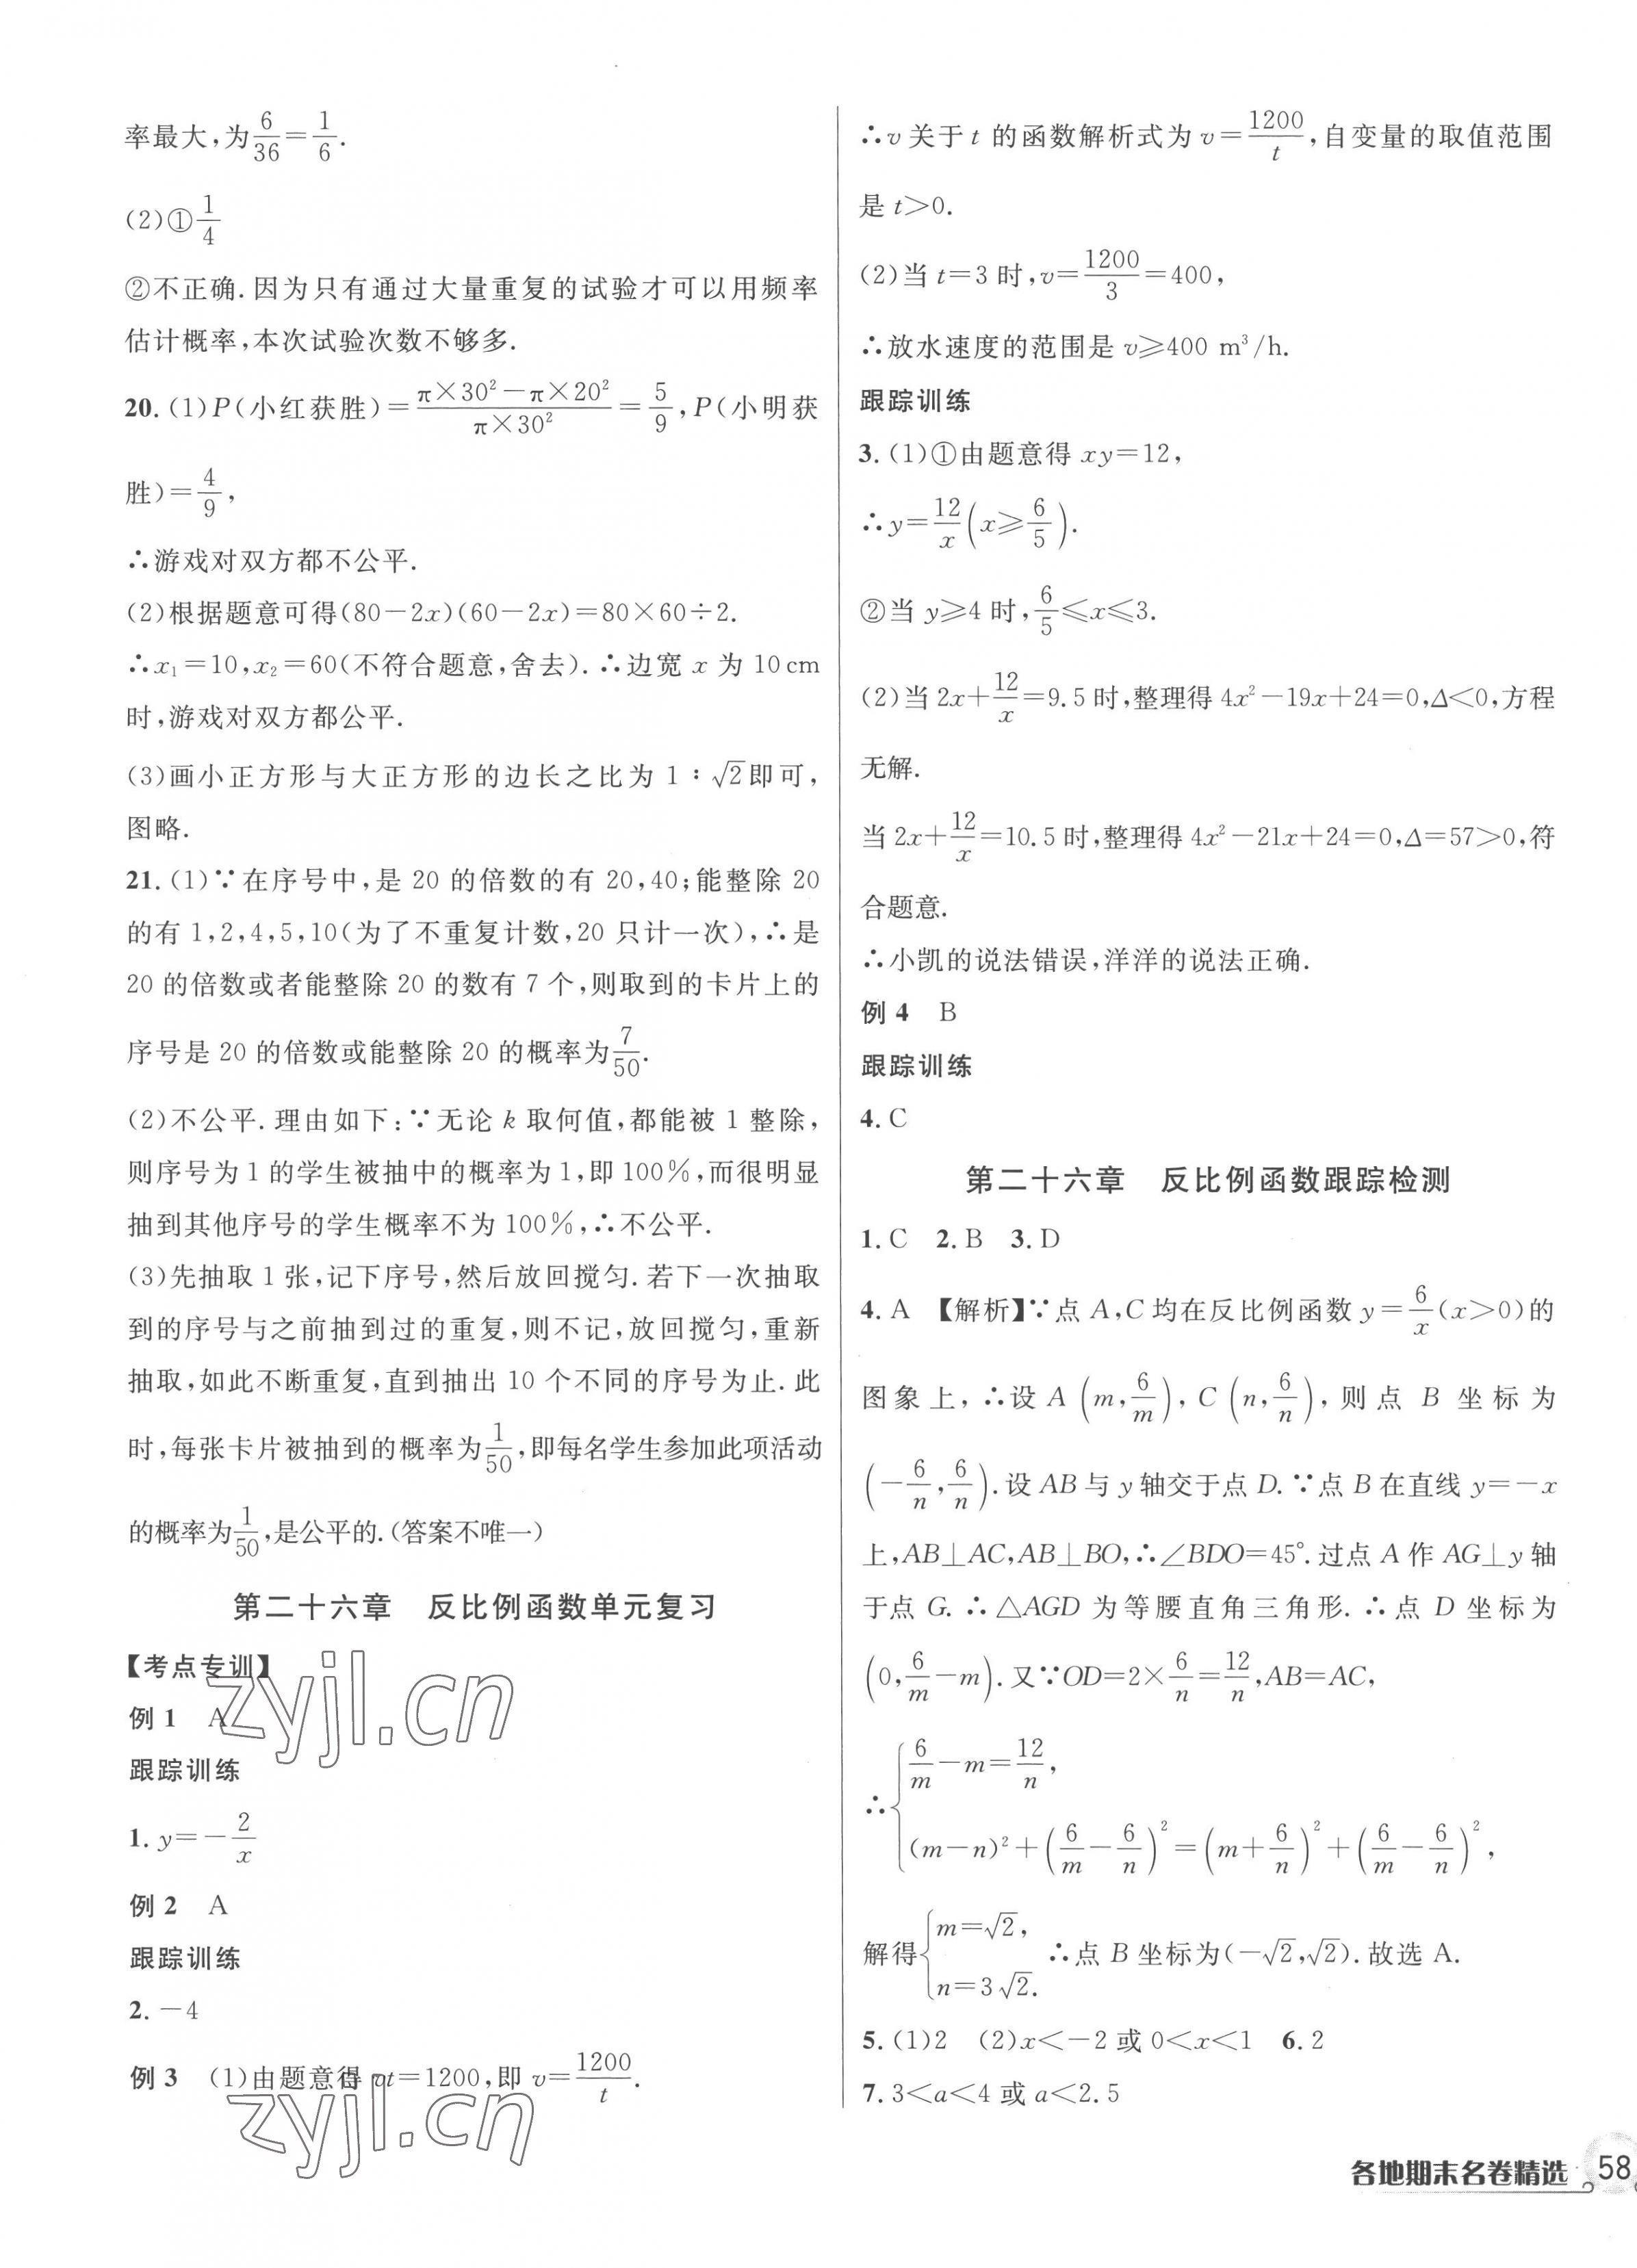 率最大,为6/36=1/6.
(2)①1/4
②不正确.因为只有通过大量重复的试验才可以用频率
估计概率,本次试验次数不够多.
20.(1)P(小红获胜)=(π×30²-π×20²)/(π×30²)=5/9,P(小明获
胜)=4/9,
∴游戏对双方都不公平.
(2)根据题意可得(80-2x)(60-2x)=80×60÷2.
∴x₁=10,x₂=60(不符合题意,舍去).∴边宽 x 为 10 cm
时,游戏对双方都公平.
(3)画小正方形与大正方形的边长之比为 1∶√2即可,
图略.
21.(1)∵在序号中,是 20 的倍数的有 20,40;能整除 20
的有 1,2,4,5,10(为了不重复计数,20 只计一次),∴是
20 的倍数或者能整除 20 的数有 7 个,则取到的卡片上的
序号是 20 的倍数或能整除 20 的概率为7/50.
(2)不公平.理由如下:∵无论 k 取何值,都能被 1 整除,
则序号为 1 的学生被抽中的概率为 1,即 100%,而很明显
抽到其他序号的学生概率不为 100%,∴不公平.
(3)先抽取 1 张,记下序号,然后放回搅匀.若下一次抽取
到的序号与之前抽到过的重复,则不记,放回搅匀,重新
抽取,如此不断重复,直到抽出 10 个不同的序号为止.此
时,每张卡片被抽到的概率为1/50,即每名学生参加此项活动
的概率为1/50,是公平的.(答案不唯一)
第二十六章 反比例函数单元复习
【考点专训】
例 1 A
跟踪训练
1. y=-2/x
例 2 A
跟踪训练
2. -4
例 3 (1)由题意得 vt=1200,即 v=1200/t.
zyjl.cn
zyjl.cn
∴v 关于 t 的函数解析式为 v=1200/t,自变量的取值范围
是 t>0.
(2)当 t=3 时,v=1200/3=400,
∴放水速度的范围是 v≥400 m³/h.
跟踪训练
3.(1)①由题意得 xy=12,
∴y=12/x(x≥6/5).
②当 y≥4 时,6/5≤x≤3.
(2)当 2x+12/x=9.5 时,整理得 4x²-19x+24=0,Δ<0,方程
无解.
当 2x+12/x=10.5 时,整理得 4x²-21x+24=0,Δ=57>0,符
合题意.
∴小凯的说法错误,洋洋的说法正确.
例 4 B
跟踪训练
4. C
第二十六章 反比例函数跟踪检测
1. C 2. B 3. D
4. A 【解析】∵点 A,C 均在反比例函数 y=6/x(x>0)的
图象上,∴设 A(m,6/m),C(n,6/n),则点 B 坐标为
(-6/n,6/n).设 AB 与 y 轴交于点 D.∵点 B 在直线 y=-x
上,AB⊥AC,AB⊥BO,∴∠BDO=45°.过点 A 作 AG⊥y 轴
于点 G.∴△AGD 为等腰直角三角形.∴点 D 坐标为
(0,6/m-m).又∵OD=2×6/n=12/n,AB=AC,
∴{6/m-m=12/n,
(m-n)²+(6/m-6/n)²=(m+6/n)²+(6/m-6/n)²,
解得{m=√2, n=3√2. ∴点 B 坐标为(-√2,√2).故选 A.
5.(1)2 (2)x<-2 或 0<x<1 6. 2
7. 3<a<4 或 a<2.5
各地期末名卷精选 58